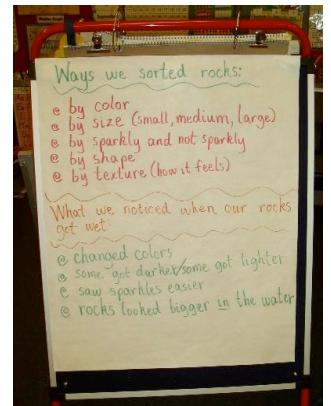 Ways we sorted rocks:
@ by color
@ by size (small, medium, large)
@ by sparkly and not sparkly
@ by shape
@ by texture (how it feels)
What we noticed when our rocks
got wet:
@ changed colors
@ some got darker/some got lighter
@ saw sparkles easier
@ rocks looked bigger in the water